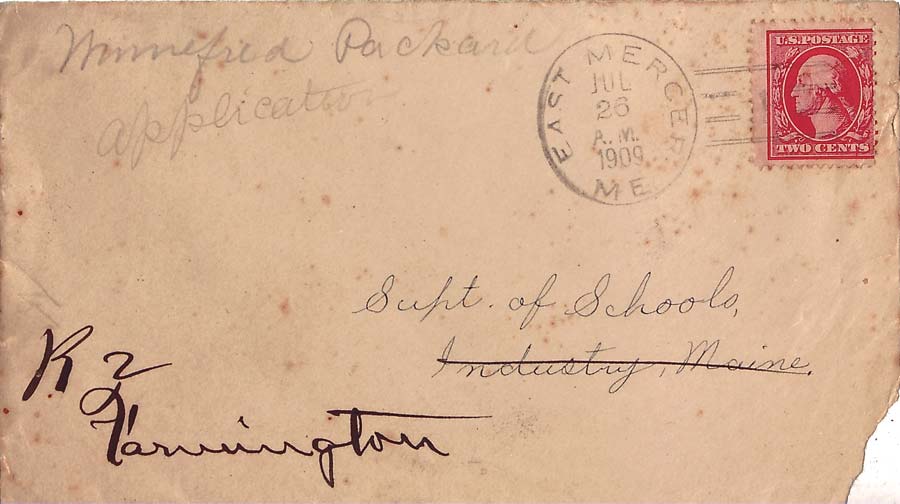 Winnefred Packard
application
EAST MERCER
JUL
26
A.M.
1909
ME.
U.S. POSTAGE
TWO CENTS
Supt. of Schools,
Industry, Maine.
R 2
Farmington